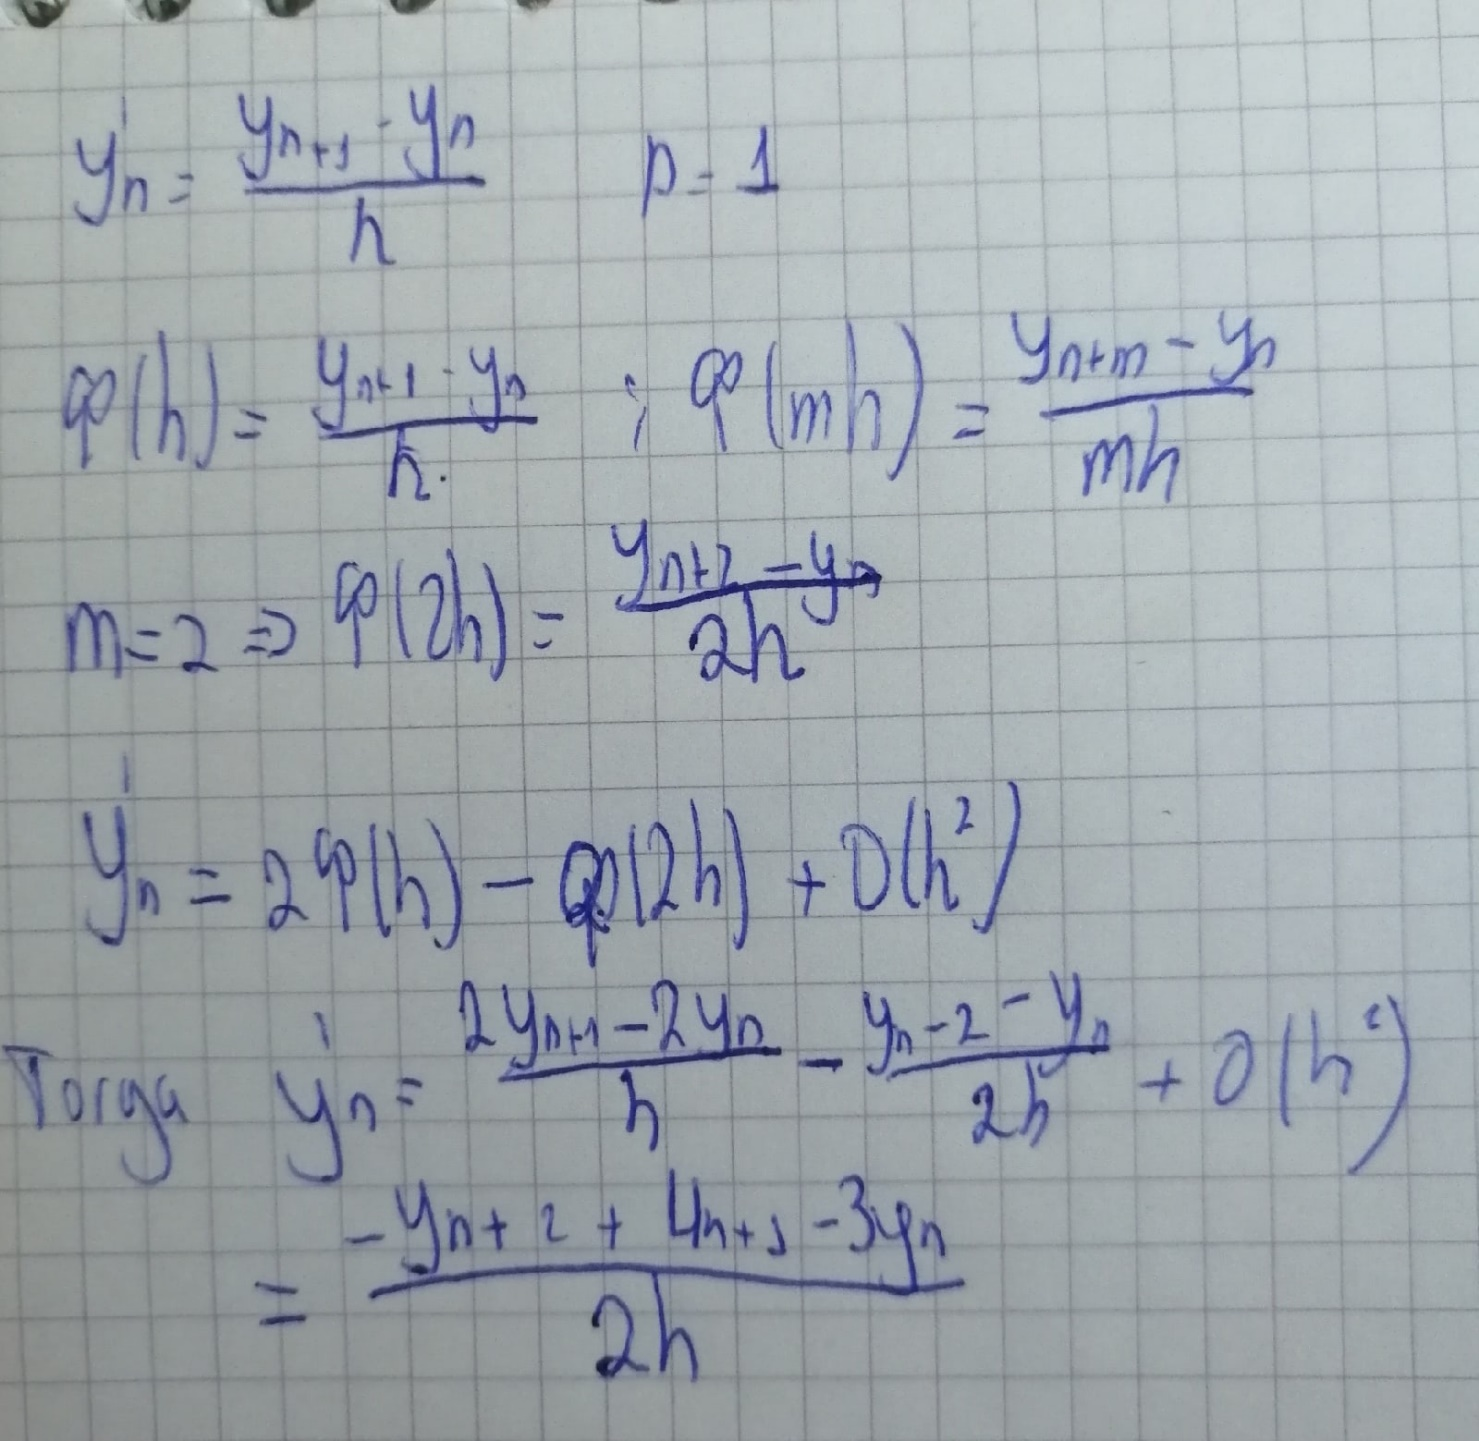 y'n = (yn+1 - yn)/h p = 1
φ(h) = (yn+1 - yn)/h. ; φ(mh) = (yn+m - yn)/mh
m = 2 => φ(2h) = (yn+2 - yn)/2h
y'n = 2φ(h) - φ(2h) + O(h²)
Тогда y'n = (2yn+1 - 2yn)/h - (yn-2 - yn)/2h + O(h²)
= (-yn+2 + 4n+1 - 3yn)/2h